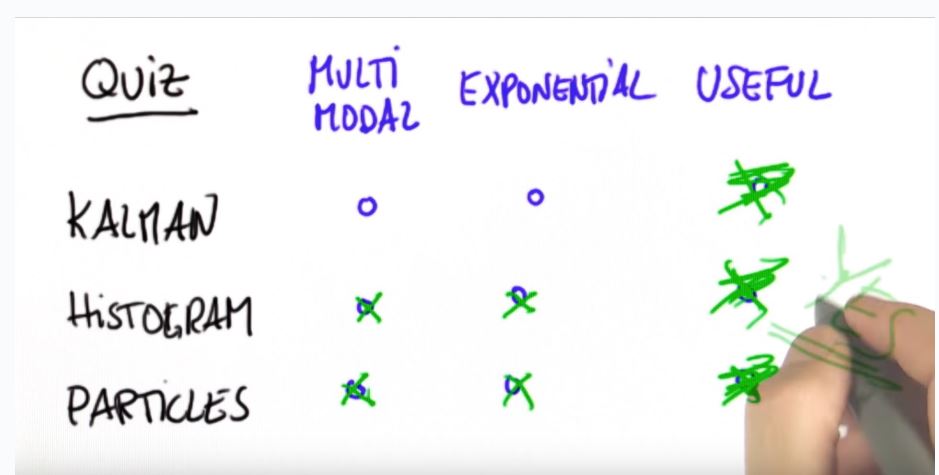 QUiZ MULTI MODAL EXPONENTIAL USEFUL
KALMAN
HiSTOGRAM
PARTiCLES